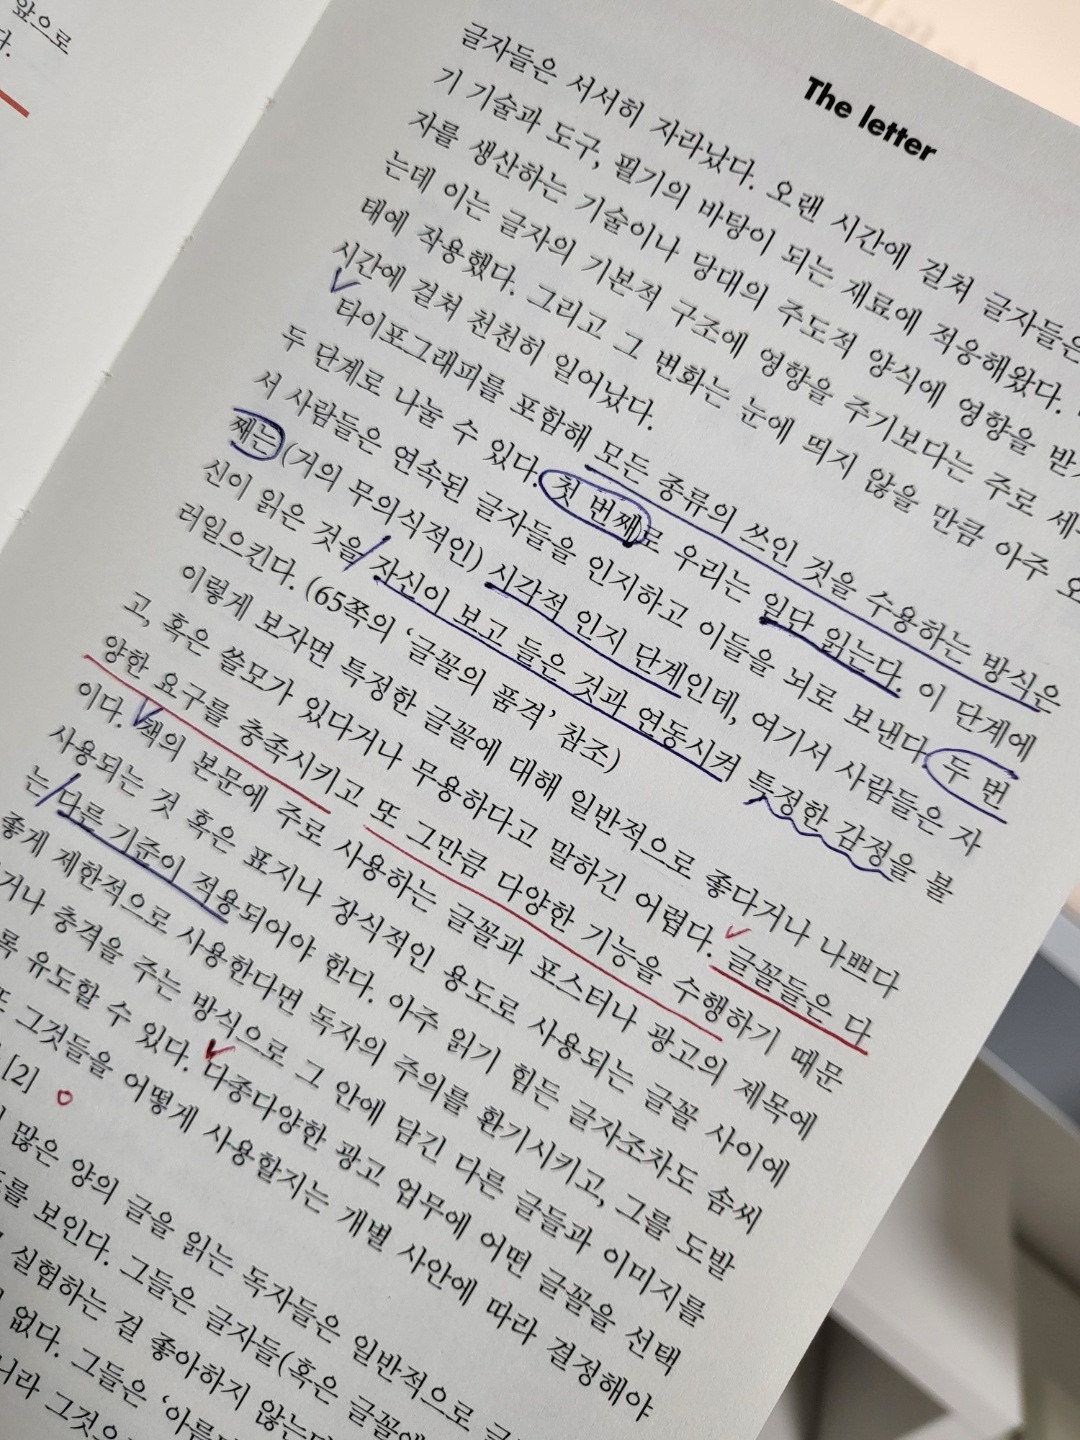 앞으로
다.
The letter
글자들은 서서히 자라났다. 오랜 시간에 걸쳐 글자들은
기 기술과 도구, 필기의 바탕이 되는 재료에 적응해왔다.
자를 생산하는 기술이나 당대의 주도적 양식에 영향을 받
는데 이는 글자의 기본적 구조에 영향을 주기보다는 주로 세
태에 작용했다. 그리고 그 변화는 눈에 띄지 않을 만큼 아주 오
시간에 걸쳐 천천히 일어났다.
타이포그래피를 포함해 모든 종류의 쓰인 것을 수용하는 방식은
두 단계로 나눌 수 있다. 첫 번째로 우리는 일단 읽는다. 이 단계에
서 사람들은 연속된 글자들을 인지하고 이들을 뇌로 보낸다. 두 번
째는 (거의 무의식적인) 시각적 인지 단계인데, 여기서 사람들은 자
신이 읽은 것을 자신이 보고 들은 것과 연동시켜 특정한 감정을 불
러일으킨다. (65쪽의 ‘글꼴의 품격’ 참조)
이렇게 보자면 특정한 글꼴에 대해 일반적으로 좋다거나 나쁘다
고, 혹은 쓸모가 있다거나 무용하다고 말하긴 어렵다. 글꼴들은 다
양한 요구를 충족시키고 또 그만큼 다양한 기능을 수행하기 때문
이다. 책의 본문에 주로 사용하는 글꼴과 포스터나 광고의 제목에
사용되는 것 혹은 표지나 장식적인 용도로 사용되는 글꼴 사이에
는 다른 기준이 적용되어야 한다. 아주 읽기 힘든 글자조차도 솜씨
좋게 제한적으로 사용한다면 독자의 주의를 환기시키고, 그를 도발
거나 충격을 주는 방식으로 그 안에 담긴 다른 글들과 이미지를
록 유도할 수 있다. 다종다양한 광고 업무에 어떤 글꼴을 선택
또 그것들을 어떻게 사용할지는 개별 사안에 따라 결정해야
[2]
많은 양의 글을 읽는 독자들은 일반적으로
를 보인다. 그들은 글자들(혹은 글꼴에
실험하는 걸 좋아하지 않는다
없다. 그들은 ‘아름
니라 그것으